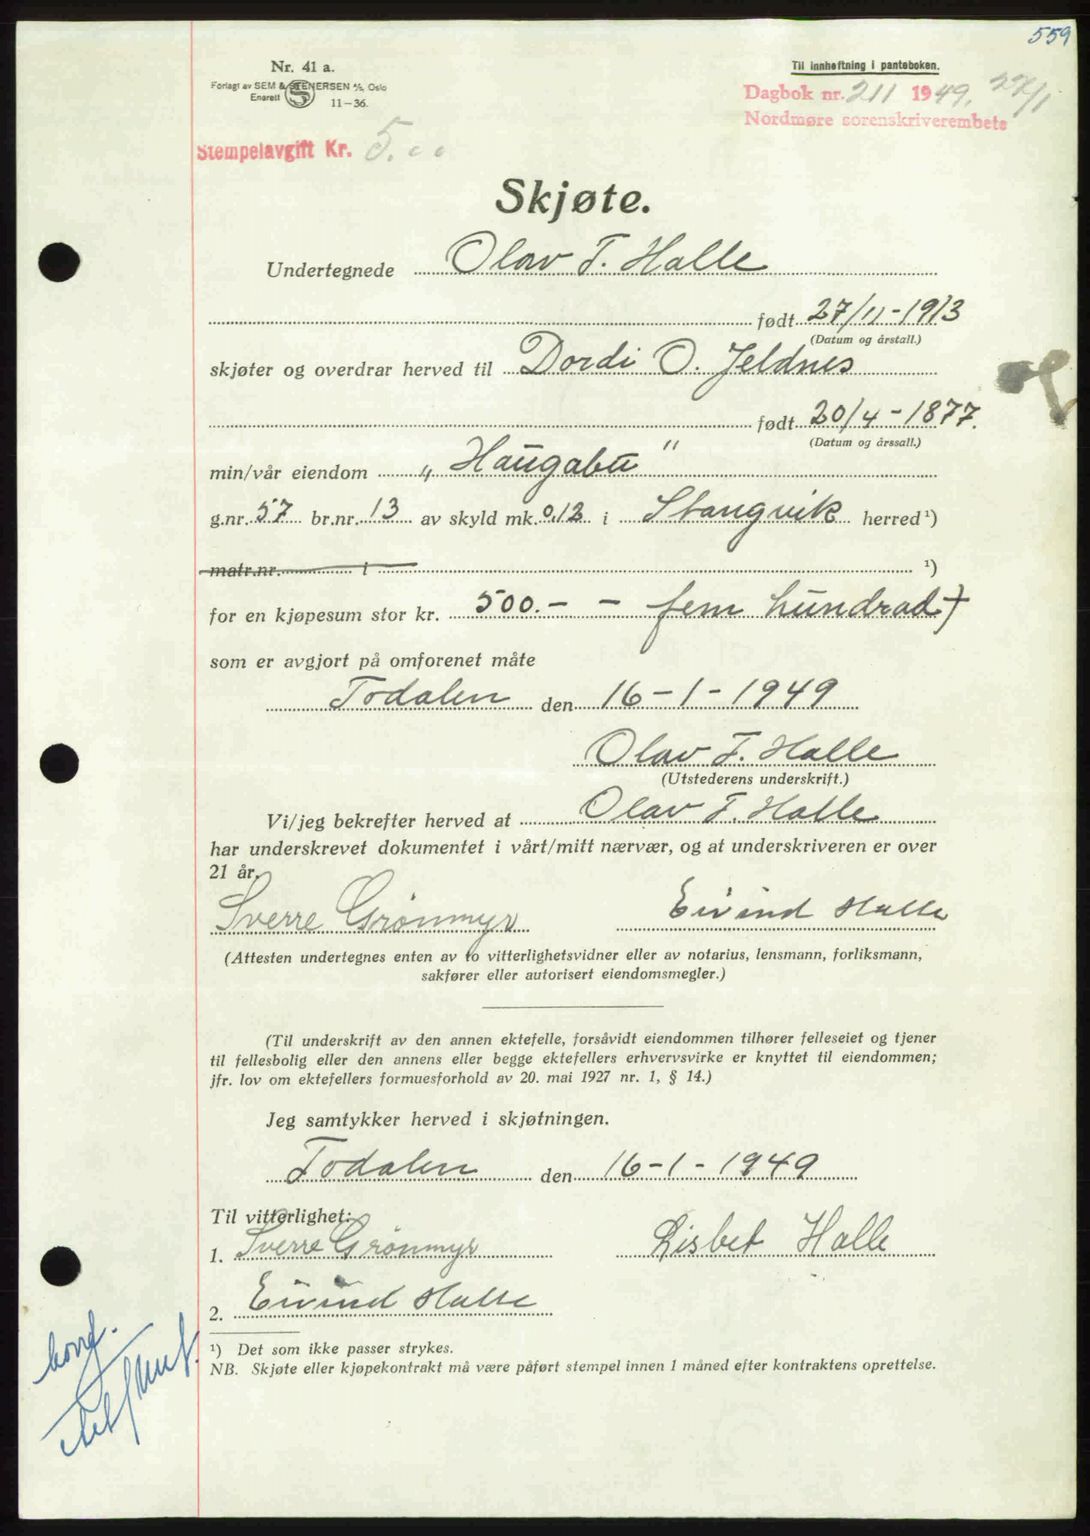 559
Nr. 41 a.
Forlagt av SEM & STENERSEN A/S, Oslo
Enerett 11–36.
Til innheftning i panteboken.
Dagbok nr. 211 1949. 22/1
Nordmøre sorenskriverembete
Stempelavgift Kr. 5.00
Skjøte.
Undertegnede Olav T. Halle
født 27/11-1913
(Datum og årstall.)
skjøter og overdrar herved til Dordi O. Jeldnes
født 20/4-1877.
(Datum og årssall.)
min/vår eiendom „Haugabu"
g.nr. 57 br.nr. 13 av skyld mk. 0,12 i Stangvik herred ¹)
matr.nr. i ¹)
for en kjøpesum stor kr. 500.- - fem hundrad
som er avgjort på omforenet måte
Todalen den 16-1-1949
Olav T. Halle
(Utstederens underskrift.)
Vi/jeg bekrefter herved at Olav T. Halle
har underskrevet dokumentet i vårt/mitt nærvær, og at underskriveren er over
21 år.
Sverre Grønmyr Eivind Halle
(Attesten undertegnes enten av to vitterlighetsvidner eller av notarius, lensmann, forliksmann,
sakfører eller autorisert eiendomsmegler.)
(Til underskrift av den annen ektefelle, forsåvidt eiendommen tilhører felleseiet og tjener
til fellesbolig eller den annens eller begge ektefellers erhvervsvirke er knyttet til eiendommen;
jfr. lov om ektefellers formuesforhold av 20. mai 1927 nr. 1, § 14.)
Jeg samtykker herved i skjøtningen.
Todalen den 16-1-1949
Til vitterlighet:
1. Sverre Grønmyr Lisbet Halle
2. Eivind Halle
¹) Det som ikke passer strykes.
NB. Skjøte eller kjøpekontrakt må være påført stempel innen 1 måned efter kontraktens oprettelse.